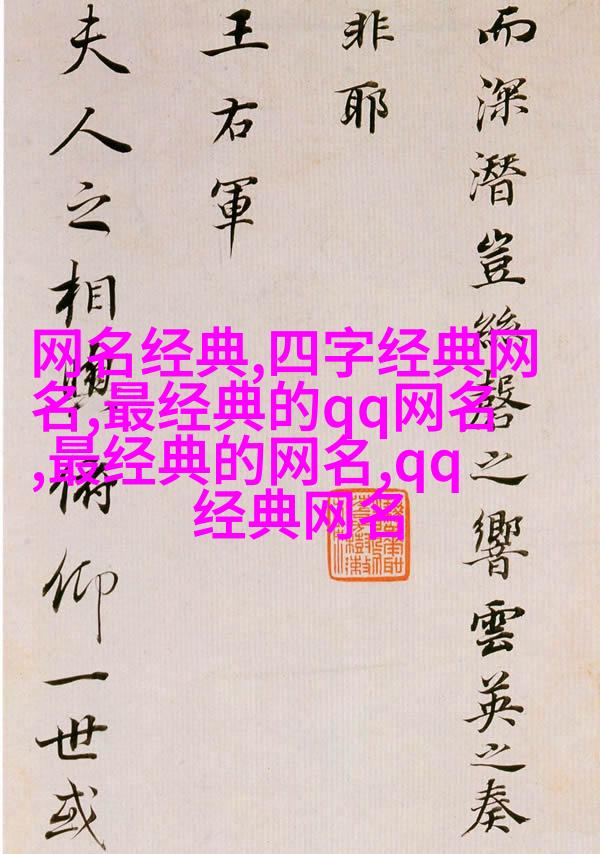 而深潛豈絲磬之響雲英之奏
非耶
王右軍
夫人之相與俯仰一世或
网名经典,四字经典网
名,最经典的qq网名
,最经典的网名,qq
经典网名